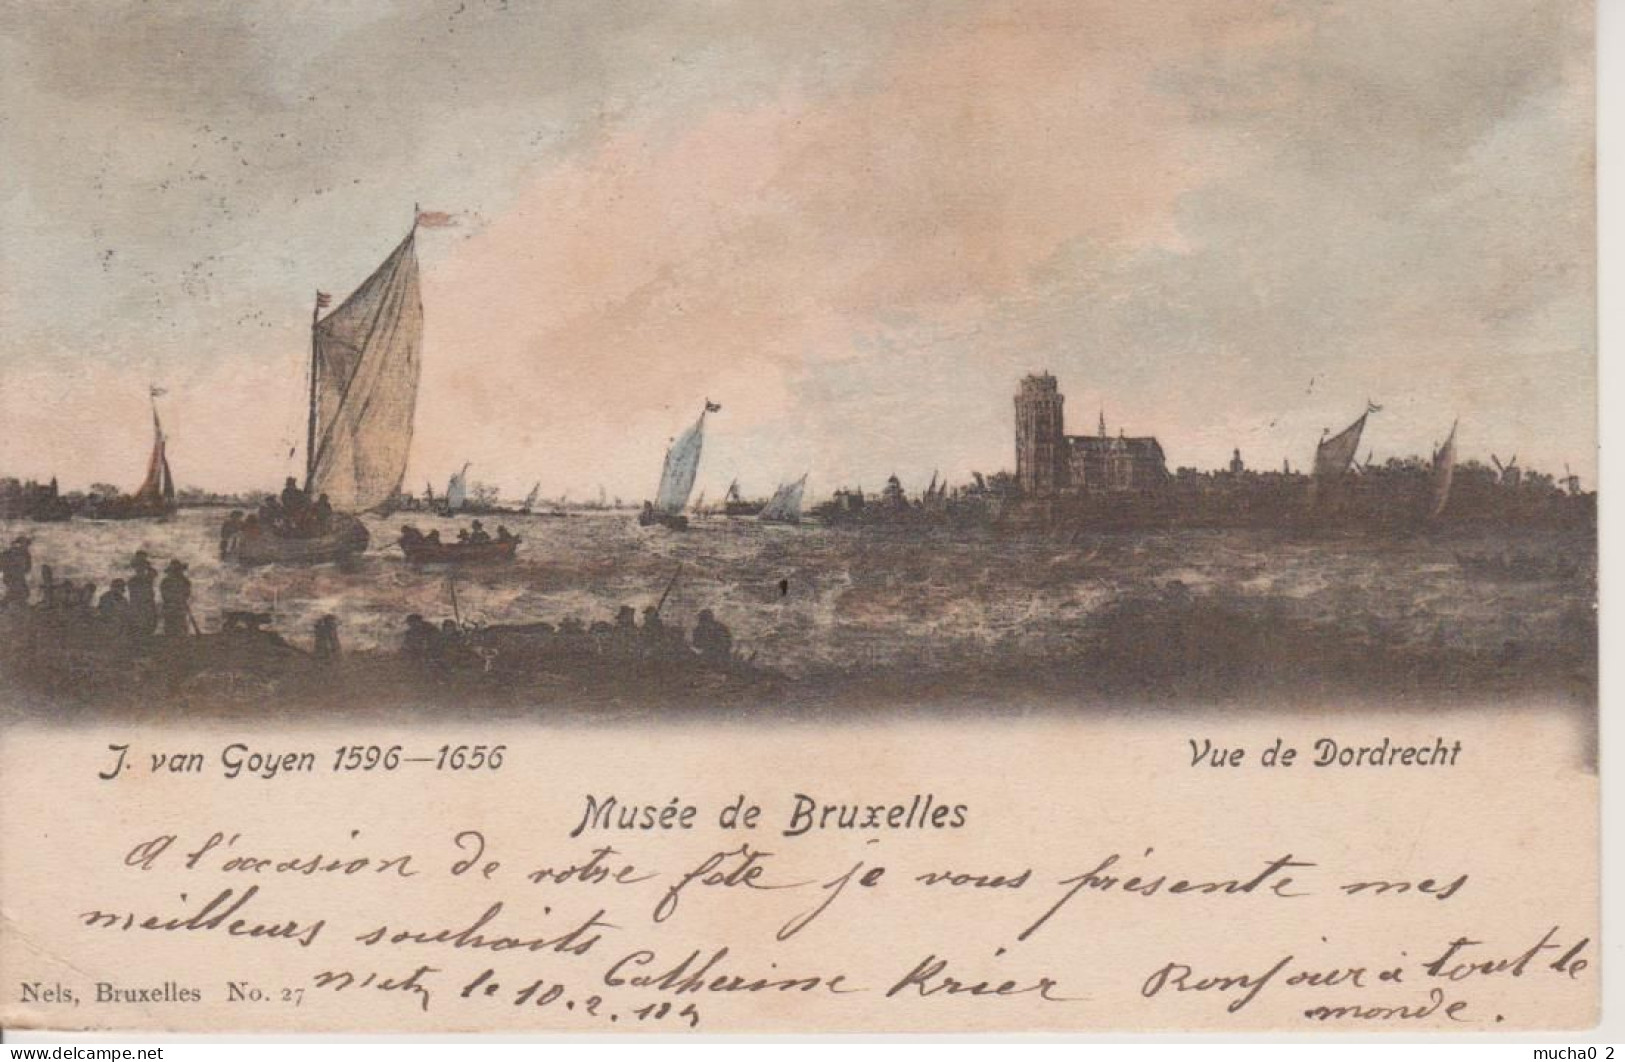 J. van Goyen 1596—1656
Vue de Dordrecht
Musée de Bruxelles
A l'occasion de votre fête je vous présente mes
meilleurs souhaits
Catherine Krier
Bonjour à tout le
monde.
Metz le 10.2.
Nels, Bruxelles No. 27
mucha0_2